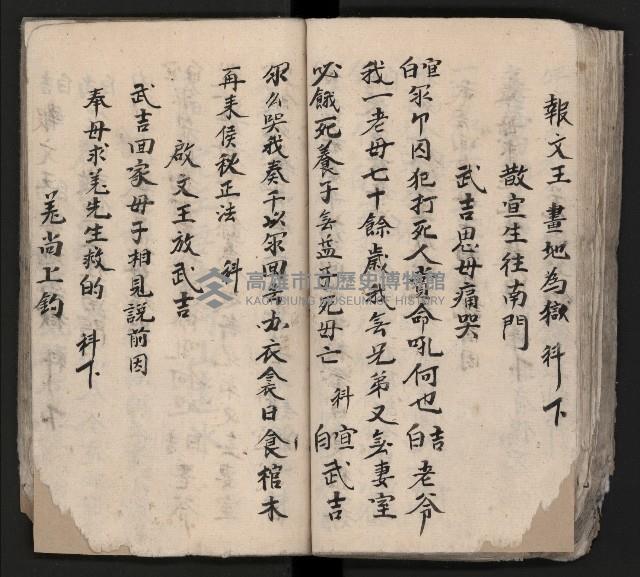 報文王 畫地為獄 科下
散宜生往南門
武吉思母痛哭
宜白 尔乃囚犯打死人賞命吼何也 吉白 老爷
我一老母七十餘歲我無兄弟又無妻室
必餓死養子無益子死母亡 科 宜白 武吉
尔么哭我奏千以尔回家办衣衾日食棺木
再来侯秋正法 科
啟文王放武吉
武吉回家母子相見説前因
奉母求羌先生救的 科下
羌尚上釣
高雄市立歷史博物館
KAOHSIUNG MUSEUM OF HISTORY